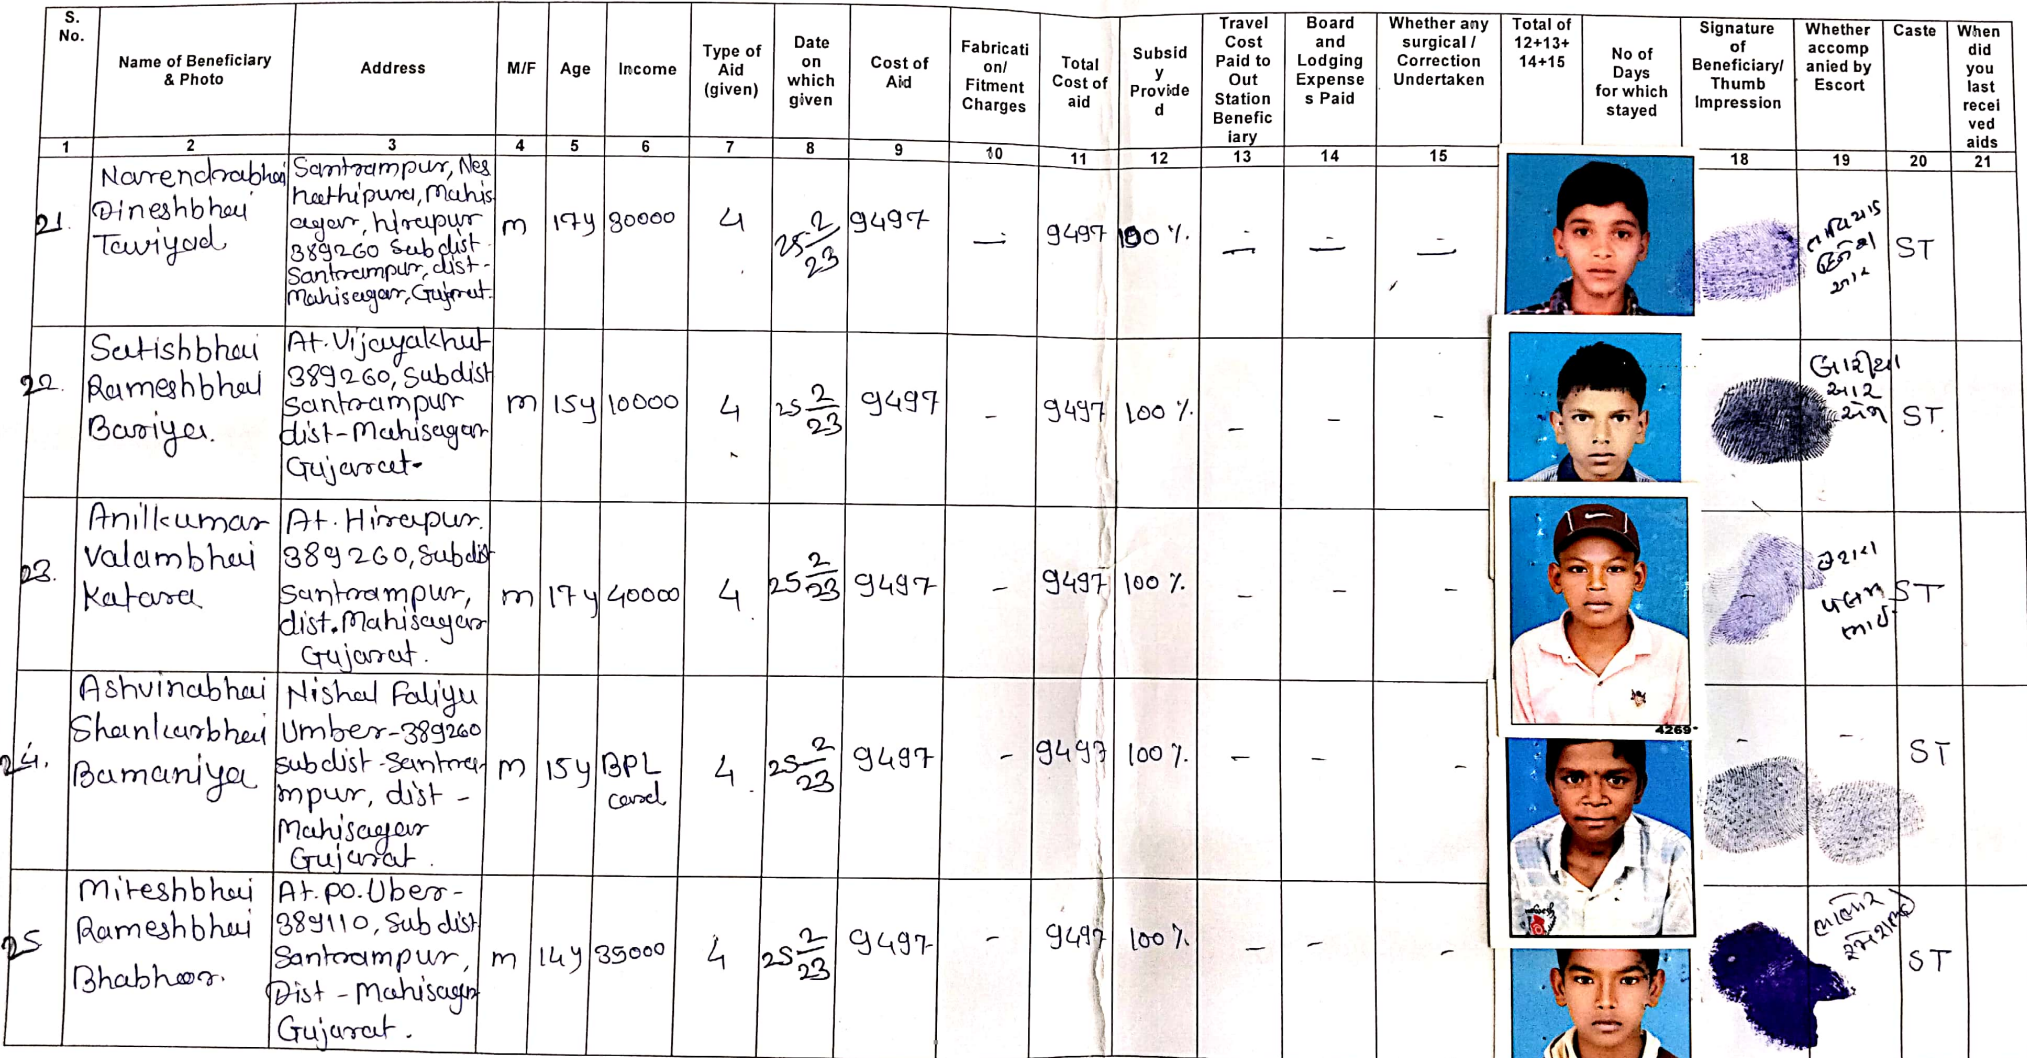 S. No.
Name of Beneficiary & Photo
Address
M/F
Age
Income
Type of Aid (given)
Date on which given
Cost of Aid
Fabricati on/ Fitment Charges
Total Cost of aid
Subsid y Provide d
Travel Cost Paid to Out Station Benefic iary
Board and Lodging Expense s Paid
Whether any surgical / Correction Undertaken
Total of 12+13+ 14+15
No of Days for which stayed
Signature of Beneficiary/ Thumb Impression
Whether accomp anied by Escort
Caste
When did you last recei ved aids
1 2 3 4 5 6 7 8 9 10 11 12 13 14 15 18 19 20 21
21.
Narendrabhai
Dineshbhai
Taviyad
Santrampur, Nes
hathipura, Mahis
agar, hirapur
389260 Sub dist
Santrampur, dist-
Mahisagar, Gujrat.
m 17y 30000 4 25-2/23 9497 — 9497 100 % — — — ST
22.
Satishbhai
Rameshbhai
Bariya.
At. Vijayakhut
389260, Subdist
Santrampur
dist-Mahisagar
Gujarat-
m 15y 10000 4 25 2/23 9497 - 9497 100 % - - - ST.
23.
Anilkumar
Valambhai
Katara
At. Hirapur.
389260, Subdist
Santrampur,
dist. Mahisagar
Gujarat.
m 17y 40000 4 25 2/23 9497 - 9497 100 % - - - ST
24.
Ashvinabhai
Shankarbhai
Bamaniya
Nishal Faliyu
Umber-389260
subdist-Santra-
mpur, dist -
Mahisagar
Gujarat.
m 15y BPL card 4 25-2/23 9497 - 9497 100 % - - - - - ST
4269-
25
Miteshbhai
Rameshbhai
Bhabhor.
At. po. Uber-
389110, Sub dist
Santrampur,
Dist - Mahisagar
Gujarat.
m 14y 35000 4 25 2/23 9497 - 9497 100 % - - - ST